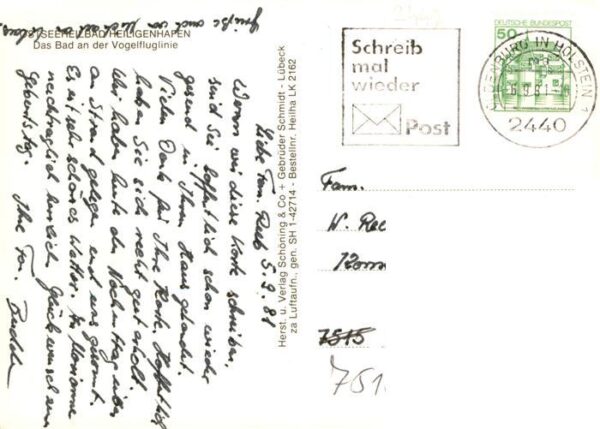 OSTSEEHEILBAD HEILIGENHAFEN
Das Bad an der Vogelfluglinie
Liebe Fam. 5.9.81
Wenn wir diese Karte schreiben,
sind Sie hoffentlich schon wieder
gesund in Ihrem Haus gelandet.
Vielen Dank für Ihre Karte. Hoffentlich
haben Sie sich recht gut erholt.
Wir haben heute den Nachmittag über
am Strand gelegen und uns gesonnt.
Es ist sehr schönes Wetter. An Marianne
nachträglich herzlichen Glückwunsch zum
Geburtstag. Ihre Fam.
Grüße auch an
Herst. u. Verlag Schöning & Co + Gebrüder Schmidt - Lübeck
za Luftaufn., gen. SH 1-42714 - Bestellnr. Heilha LK 2162
Schreib
mal
wieder
Post
DEUTSCHE BUNDESPOST
50
OLDENBURG IN HOLSTEIN 1
2440
Fam.
W. Rec
7515
751